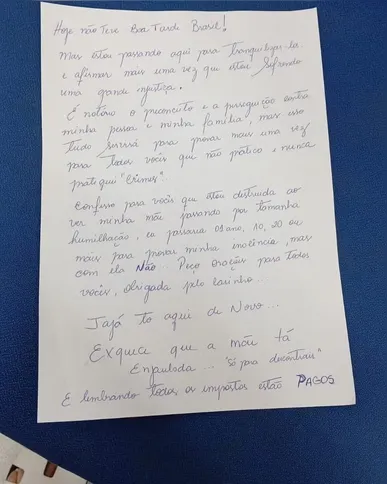 Hoje não Teve Boa Tarde Brasil!
Mas estou passando aqui para tranquiliza-la
e afirmar mais uma vez que estou Sofrendo
uma grande injustiça.
É notório o preconceito e a perseguição contra
minha pessoa e minha família, mas isso
tudo servirá para provar mais uma vez
para todos vocês que não pratico e nunca
pratiquei "Crimes".
Confesso para vocês que estou destruida ao
ver minha mãe passando por tamanha
humilhação, eu passaria 01 ano, 10, 20 ou
mais para provar minha inocência, mas
com ela Não. Peço orações para todos
vocês, obrigada pelo carinho...
Jajá to aqui de Novo...
Exquece que a mãe tá
Enpulsda... "só para descontrair"
E lembrando todos os impostos estão PAGOS